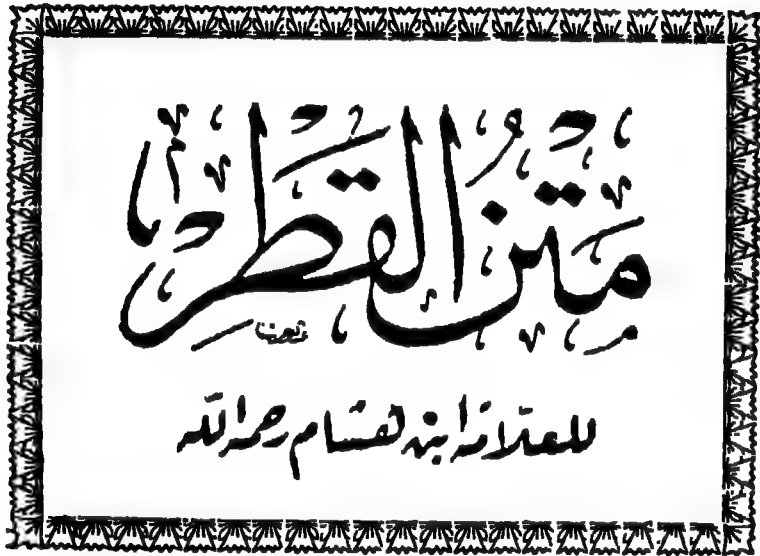 متن القطر
للعلامة ابن هشام رحمه الله